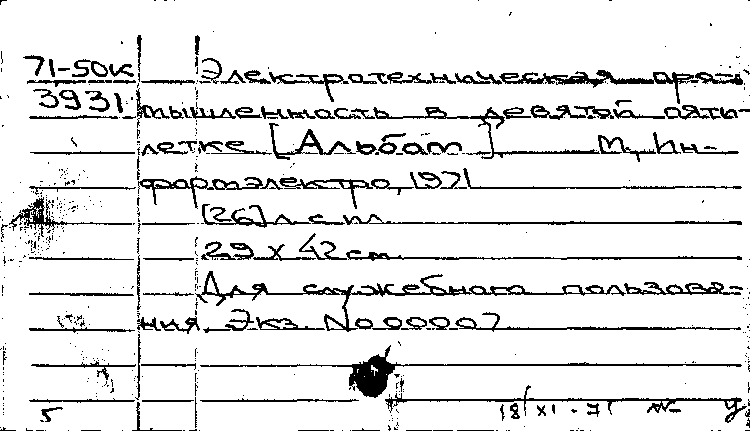 71-50к Электротехническая про-
3931 мышленность в девятой пяти-
летке [Альбом]. М., Ин-
формэлектро, 1971
[26] л. с ил.
29 х 42 см.
Для служебного пользова-
ния. Экз. No 00007
5 18/XI-71